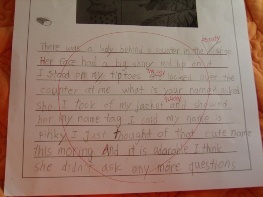 beauty
There was a lady behind a counter in the
Her face had a big shiny red lip smile
I stood on my tiptoes looked over the
counter at me. what is your name? asked
she I took of my jacket and showed
her my name tag I said my name is
Pinky I just thought of that cute name
this morning And it is adorable I think
she didn't ask any more questions